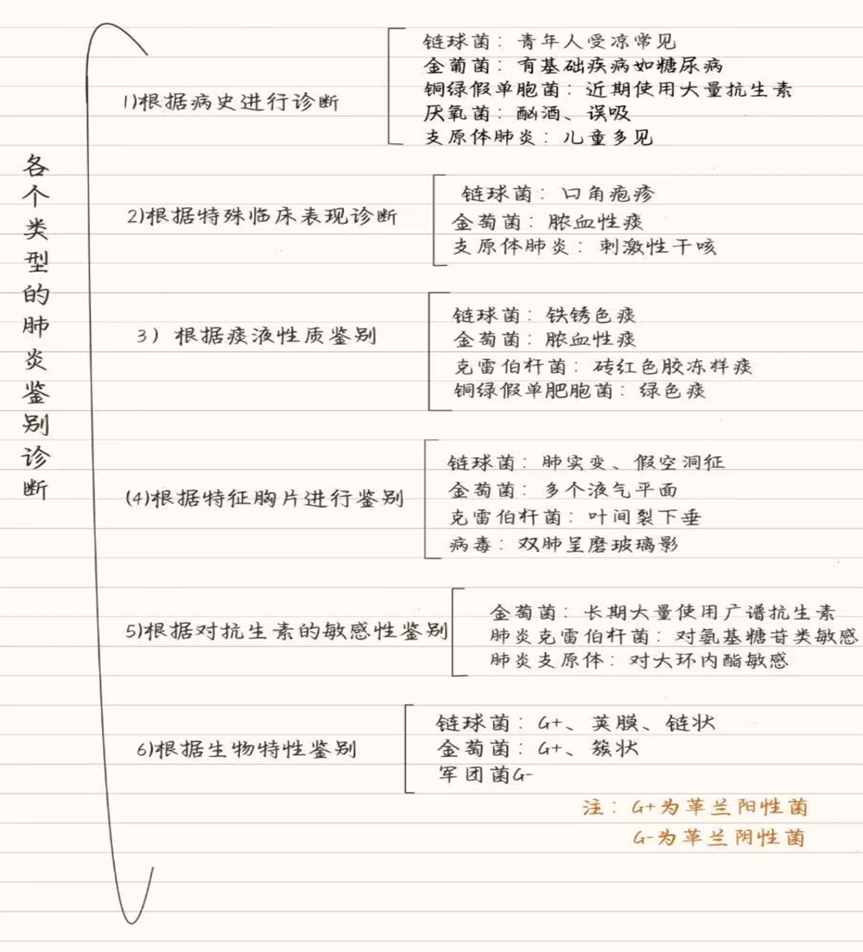 各个类型的肺炎鉴别诊断
1)根据病史进行诊断
链球菌：青年人受凉常见
金葡菌：有基础疾病如糖尿病
铜绿假单胞菌：近期使用大量抗生素
厌氧菌：酗酒、误吸
支原体肺炎：儿童多见
2)根据特殊临床表现诊断
链球菌：口角疱疹
金萄菌：脓血性痰
支原体肺炎：刺激性干咳
3）根据痰液性质鉴别
链球菌：铁锈色痰
金萄菌：脓血性痰
克雷伯杆菌：砖红色胶冻样痰
铜绿假单肥胞菌：绿色痰
(4)根据特征胸片进行鉴别
链球菌：肺实变、假空洞征
金萄菌：多个液气平面
克雷伯杆菌：叶间裂下垂
病毒：双肺呈磨玻璃影
5)根据对抗生素的敏感性鉴别
金萄菌：长期大量使用广谱抗生素
肺炎克雷伯杆菌：对氨基糖苷类敏感
肺炎支原体：对大环内酯敏感
6)根据生物特性鉴别
链球菌：G+、荚膜、链状
金萄菌：G+、簇状
军团菌G-
注：G+为革兰阳性菌
G-为革兰阴性菌